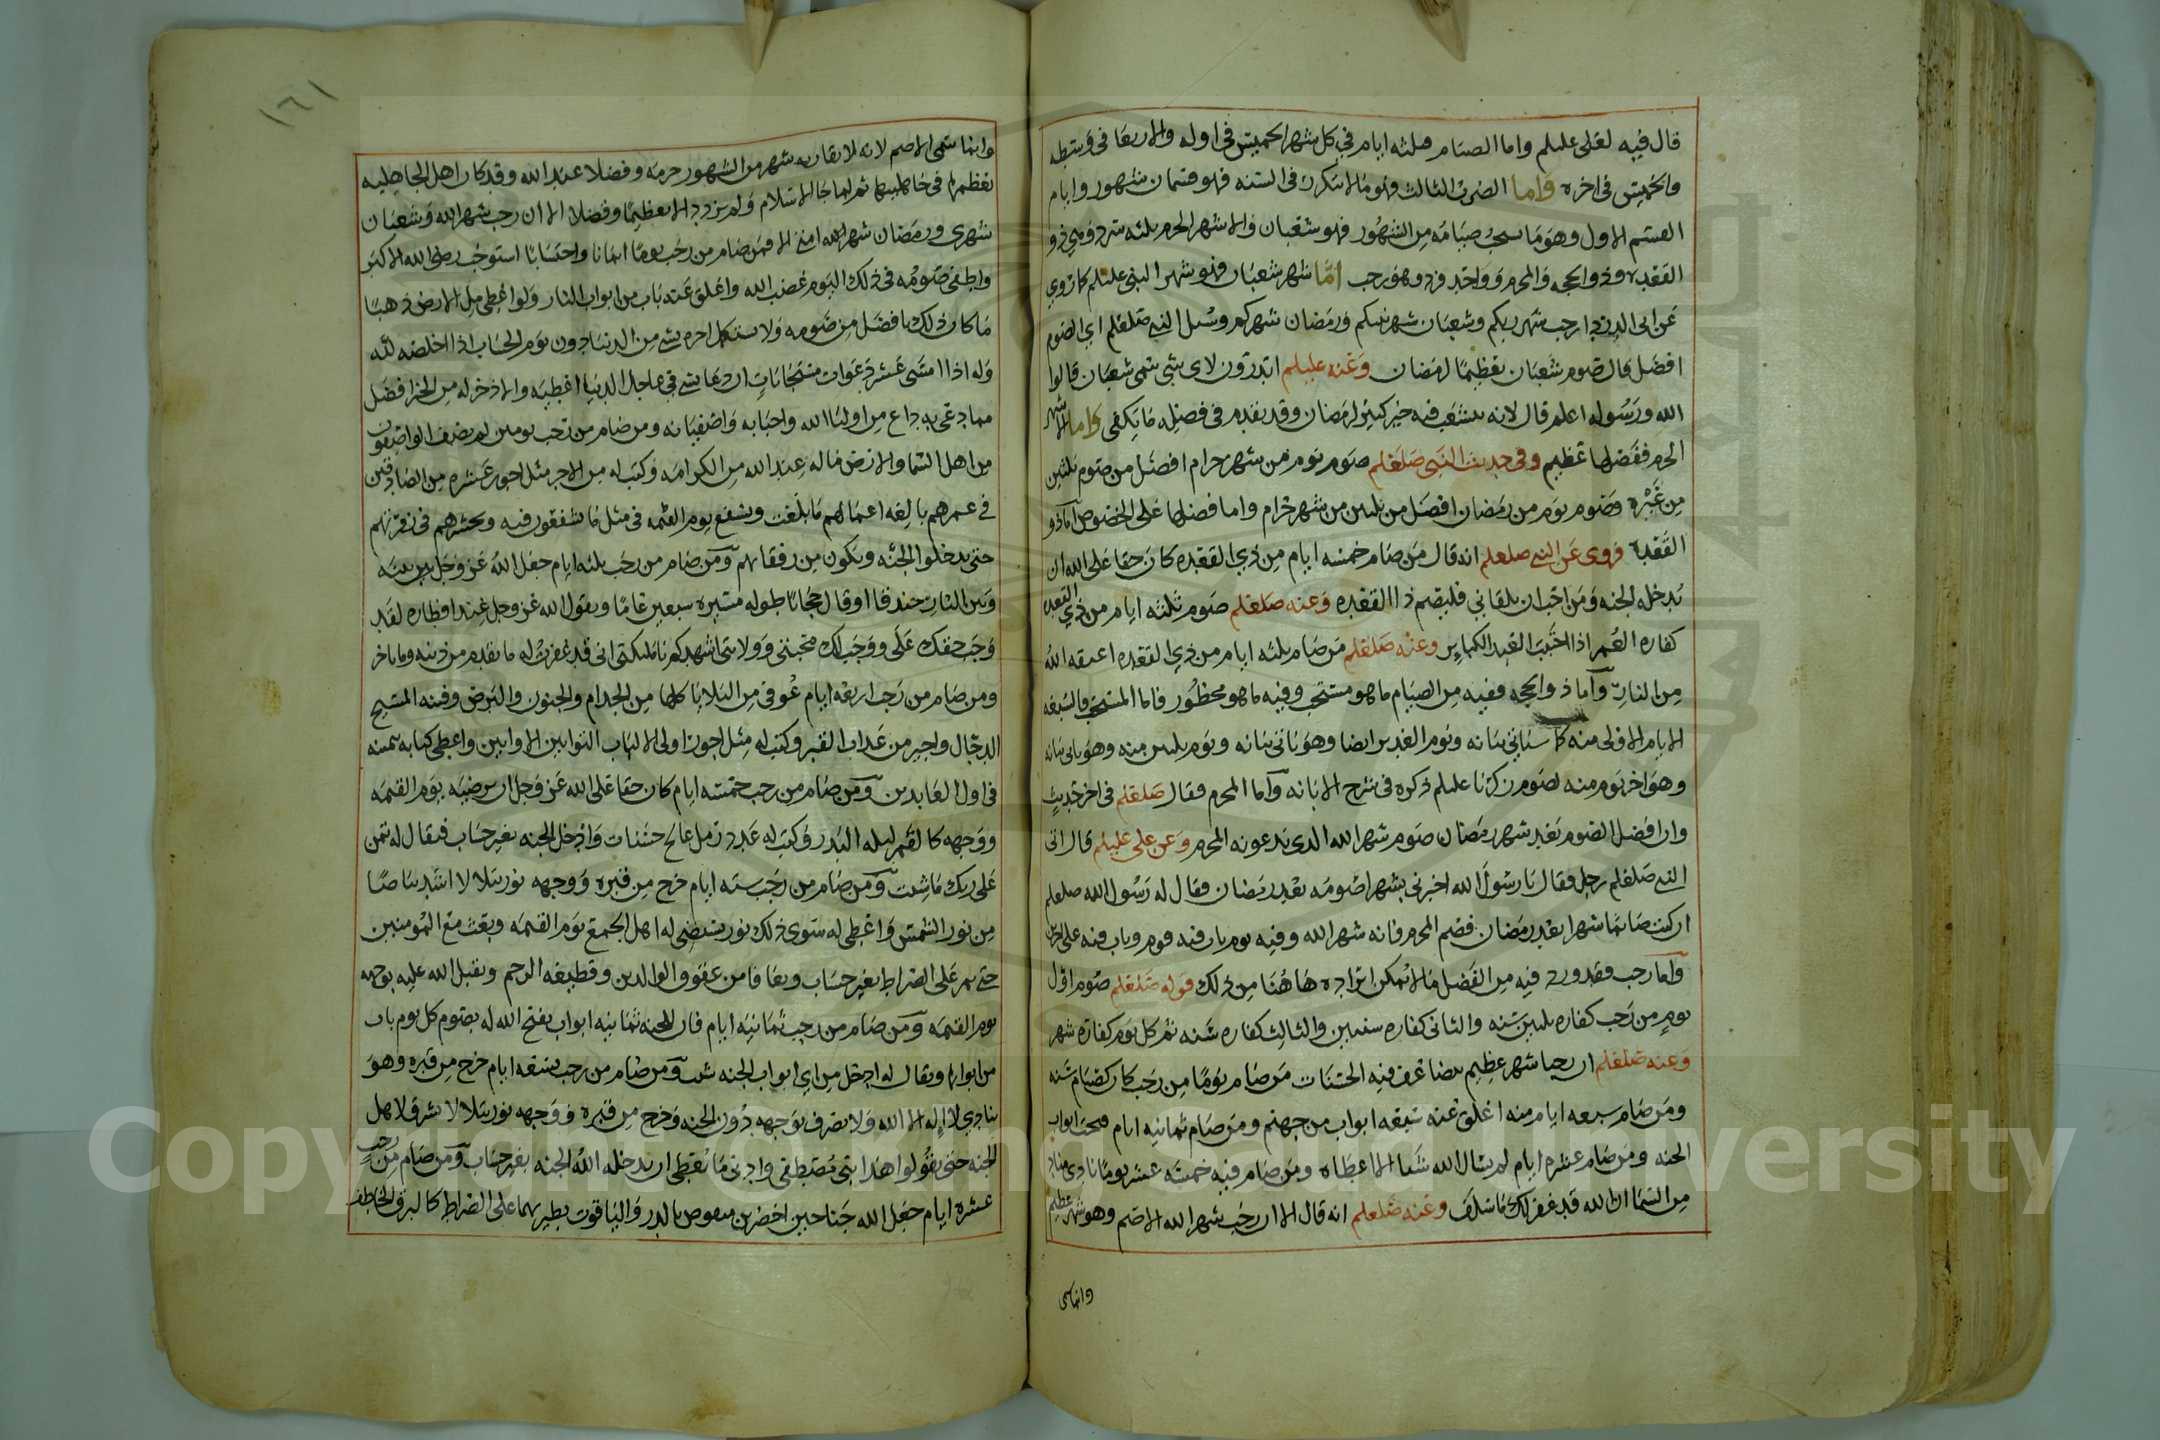 قال فيه لعلى عليلم واما الصيام فثلثه ايام في كل شهر الخميس في اوله والاربعا في وسطه
والخميس في اخره واما الضرب الثالث وهو ما لا يتكرر في السنه فهو قسمان شهور وايام
القسم الاول وهو ما يستحب صيامه من الشهور فهو شعبان والاشهر الحرم ثلثه سرد وهي ذو
القعده وذو الحجه والمحرم وواحد فرد وهو رجب اما شهر شعبان فهو شهر النبي عليلم كما روي
عن ابي الدردا رجب شهر ربكم وشعبان شهر نبيكم ورمضان شهركم وسيل النبي صلعلم اي الصوم
افضل قال صوم شعبان تعظيما لرمضان وعنه عليلم اتدرون لاي شي سمي شعبان قالوا
الله ورسوله اعلم قال لانه يتشعب فيه خير كثير لرمضان وقد تقدم في فضيله ما يكفي واما الاشهر
الحرم ففضلها عظيم وفي حديث النبي صلعلم صوم يوم من شهر حرام افضل من صوم ثلثين
من غيره وصوم يوم من رمضان افضل من ثلثين من شهر حرام واما فضلها على الخصوص اما ذو
القعده فروى عن النبي صلعلم انه قال من صام خمسه ايام من ذي القعده كان حقا على الله ان
يدخله الجنه ومن احب ان يلقاني فليصم ذا القعده وعنه صلعلم صوم ثلثه ايام من ذي القعده
كفاره العمر اذا اجتنب العبد الكباير وعنه صلعلم من صام ثلثه ايام من ذي القعده اعتقه الله
من النار واما ذو الحجه ففيه من الصيام ما هو مستحب وفيه ما هو محظور فاما المستحب فالتسعه
الايام الاولى منه كما سياتي بيانه ويوم الغدير ايضا وهو ياتي بيانه ويوم ثلثين منه وهو ياتي بيانه
وهو اخر يوم منه لصوم زكريا عليلم ذكره في شرح الابانه واما المحرم فقال صلعلم في اخر حديث
وان افضل الصوم بعد شهر رمضان صوم شهر الله الذي يدعونه المحرم وعن علي عليلم قال اتى
النبي صلعلم رجل فقال يا رسول الله اخبرني بشهر اصومه بعد رمضان فقال له رسول الله صلعلم
ان كنت صايما شهرا بعد رمضان فصم المحرم فانه شهر الله وفيه يوم تاب فيه قوم وتاب فيه على اخرين
واما رجب فقد ورد فيه من الفضل ما لا يمكن ايراده هاهنا من ذلك قوله صلعلم صوم اول
يوم من رجب كفاره ثلثين سنه والثاني كفاره سنتين والثالث كفاره سنه ثم كل يوم كفارة شهر
وعنه صلعلم ان رجبا شهر عظيم يضاعف فيه الحسنات من صام يوما من رجب كان كصيام سنه
ومن صام سبعه ايام منه اغلق عنه سبعه ابواب من جهنم ومن صام ثمانيه ايام فتحت ابواب
الجنه ومن صام عشره ايام لم يسال الله شيا الا اعطاه ومن صام فيه خمسه عشر يوما نادى مناد
من السما ان الله قد غفر لك ما سلف وعنه صلعلم انه قال الا ان رجب شهر الله الاصم وهو شهر عظيم
وانما سمي
١٦١
وانما سمي الاصم لانه لا يقاربه شهر من الشهور حرمه وفضلا عند الله وقد كان اهل الجاهليه
تعظمه في جاهليتها ثم لما جا الاسلام ولم يزدد الا تعظيما وفضلا الا ان رجب شهر الله وشعبان
شهري ورمضان شهر امتي الا فمن صام من رجب يوما ايمانا واحتسابا استوجب رضى الله الاكبر
واطفى صومه في ذلك اليوم غضب الله واغلق عنه باب من ابواب النار ولو اعطي مل الارض ذهبا
ما كان ذلك بافضل من صومه ولا يستكمل اجره بشي من الدنيا دون يوم الحساب اذا اخلصه لله
وله اذا امسى عشر دعوات مستجابات ان دعا بشي في عاجل الدنيا اعطيه والا ذخر له من الخير افضل
مما دعى به داع من اوليا الله واحبابه واصفيايه ومن صام من رجب يومين لم يصف الواصفون
من اهل السما والارض ماله عند الله من الكرامه وكتب له من الاجر مثل اجور عشره من الصادقين
في عمرهم بالغه اعمالهم ما بلغت ويشفع يوم القيمه في مثل ما شفعون فيه ويحشرهم في زمرتهم
حتى يدخلوا الجنه ويكون من رفقايهم ومن صام من رجب ثلثه ايام جعل الله عز وجل بين بينه
وبين النار خندقا او قال حجابا طوله مسيره سبعين عاما ويقول الله عز وجل عند افطاره لقد
وجب حقك على ووجب لك محبتي وولايتي اشهدكم يا مليكتي اني قد غفرت له ما تقدم من ذنبه وما تاخر
ومن صام من رجب اربعه ايام عوفي من البلايا كلها من الجذام والجنون والبرص وفتنه المسيح
الدجال واجير من عذاب القبر وكتب له مثل اجور اولى الالباب التوابين الاوابين واعطى كتابه بيمينه
في اول العابدين ومن صام من رجب خمسه ايام كان حقا على الله عز وجل ان يرضيه يوم القيمه
ووجهه كالقمر ليله البدر وكتب له عدد رمل عالج حسنات وادخل الجنه بغير حساب فيقال له تمن
على ربك ما شيت ومن صام من رجب سته ايام خرج من قبره ووجهه نور يتلالا اشد بياضا
من نور الشمس واعطى له سوى ذلك نور يستضي له اهل الجمع يوم القيمه وبعث مع المومنين
حتى يمر على الصراط بغير حساب ويعافا من عقوق الوالدين وقطيعه الرحم ويقبل الله عليه بوجهه
يوم القيمه ومن صام من رجب ثمانيه ايام فان للجنه ثمانيه ابواب يفتح الله له بصوم كل يوم باب
من ابوابها ويقال له ادخل من اي ابواب الجنه شيت ومن صام من رجب تسعه ايام خرج من قبره وهو
ينادي لا اله الا الله ولا يصرف بوجهه دون الجنه وخرج من قبره ووجهه نور يتلالا يشرق لاهل
الجنه حتى يقولوا هذا نبي مصطفى وادنى ما يعطى ان يدخله الله الجنه بغير حساب ومن صام من رجب
عشره ايام جعل الله جناحين اخضرين منصوص بالدر والياقوت يطير بهما على الصراط كالبرق الخاطف
Copyright © King Saud University